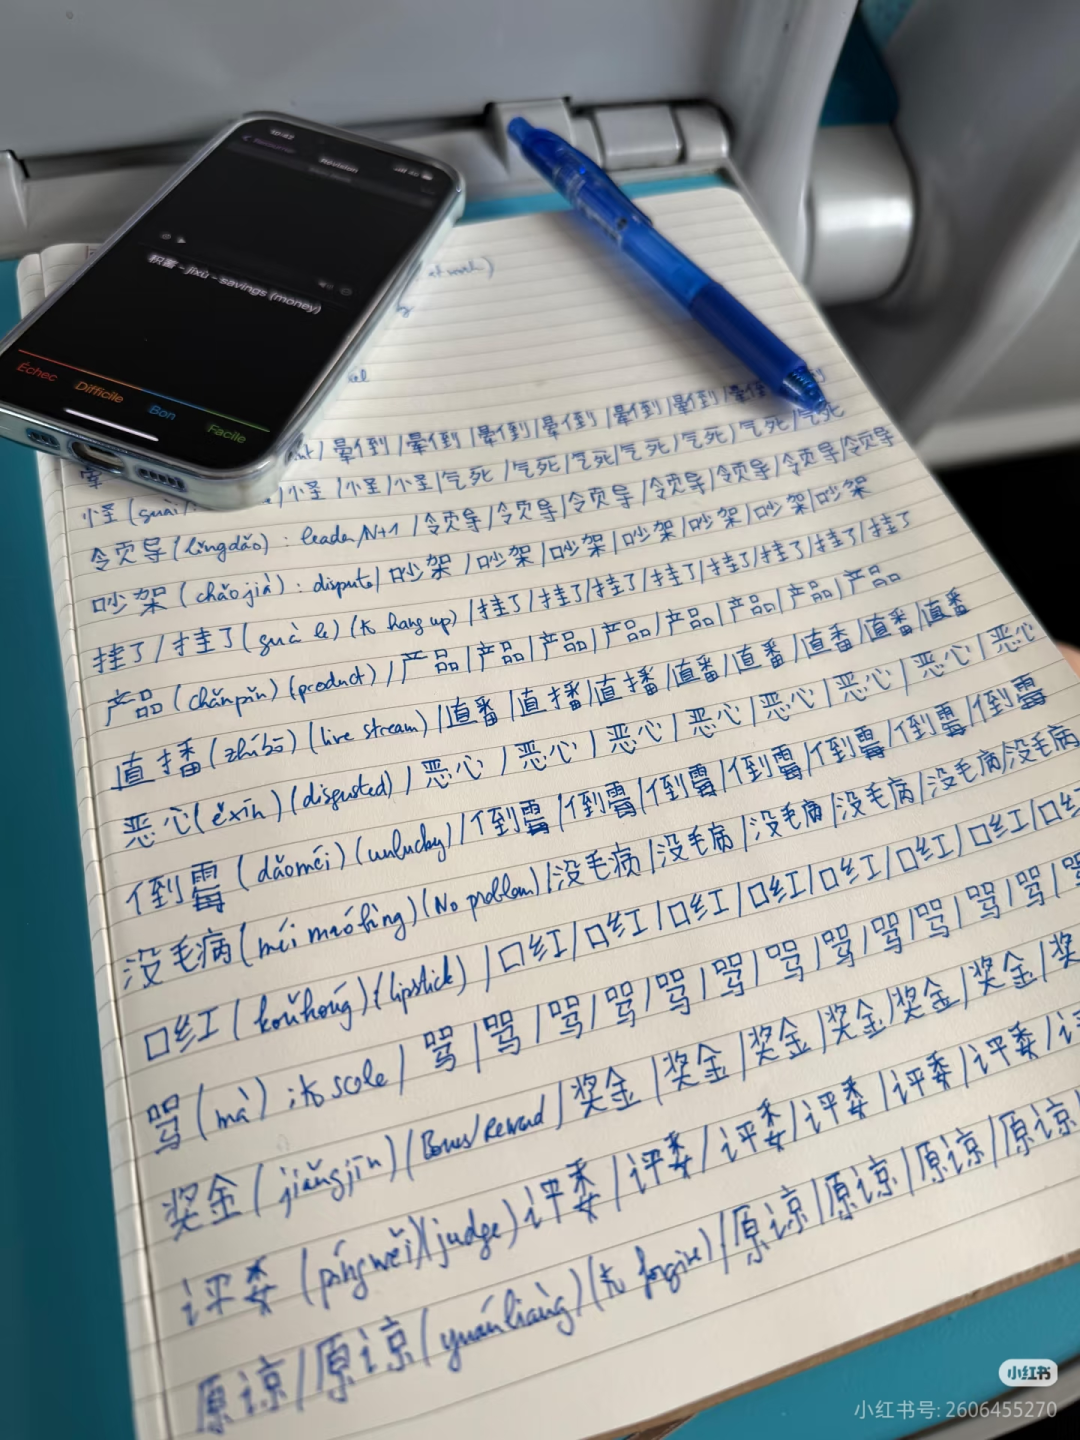 10:42
Révision
积蓄 - jīxù - savings (money)
Échec Difficile Bon Facile
晕倒 / 晕倒 / 晕倒 / 晕倒 / 晕倒 / 晕倒
怪 / 怪 / 怪 / 气死 / 气死 / 气死 / 气死 / 气死 / 气死 / 气死
领导 (lǐngdǎo) : leader, N+1 / 领导 / 领导 / 领导 / 领导 / 领导 / 领导 / 领导
吵架 (chǎojià) : dispute / 吵架 / 吵架 / 吵架 / 吵架 / 吵架 / 吵架 / 吵架
挂了 / 挂了 (guà le) (to hang up) / 挂了 / 挂了 / 挂了 / 挂了 / 挂了 / 挂了 / 挂了
产品 (chǎnpǐn) (product) / 产品 / 产品 / 产品 / 产品 / 产品 / 产品 / 产品 / 产品
直播 (zhíbō) (live stream) / 直番 / 直播 / 直播 / 直番 / 直番 / 直番 / 直番 / 直番
恶心 (ěxīn) (disgusted) / 恶心 / 恶心 / 恶心 / 恶心 / 恶心 / 恶心 / 恶心 / 恶心
倒霉 (dǎoméi) (unlucky) / 倒霉 / 倒霉 / 倒霉 / 倒霉 / 倒霉 / 倒霉 / 倒霉
没毛病 (méi máobìng) (No problem) / 没毛病 / 没毛病 / 没毛病 / 没毛病 / 没毛病 / 没毛病
口红 (kǒuhóng) (lipstick) / 口红 / 口红 / 口红 / 口红 / 口红 / 口红 / 口红 / 口红
骂 (mà) : to scold / 骂 / 骂 / 骂 / 骂 / 骂 / 骂 / 骂 / 骂 / 骂 / 骂 / 骂 / 骂
奖金 (jiǎngjīn) (Bonus/Reward / 奖金 / 奖金 / 奖金 / 奖金 / 奖金 / 奖金 / 奖
评委 (píngwěi) (judge) 评委 / 评委 / 评委 / 评委 / 评委 / 评委 /
原谅 / 原谅 (yuánliàng) (to forgive) / 原谅 / 原谅 / 原谅 / 原谅
小红书
小红书号: 2606455270